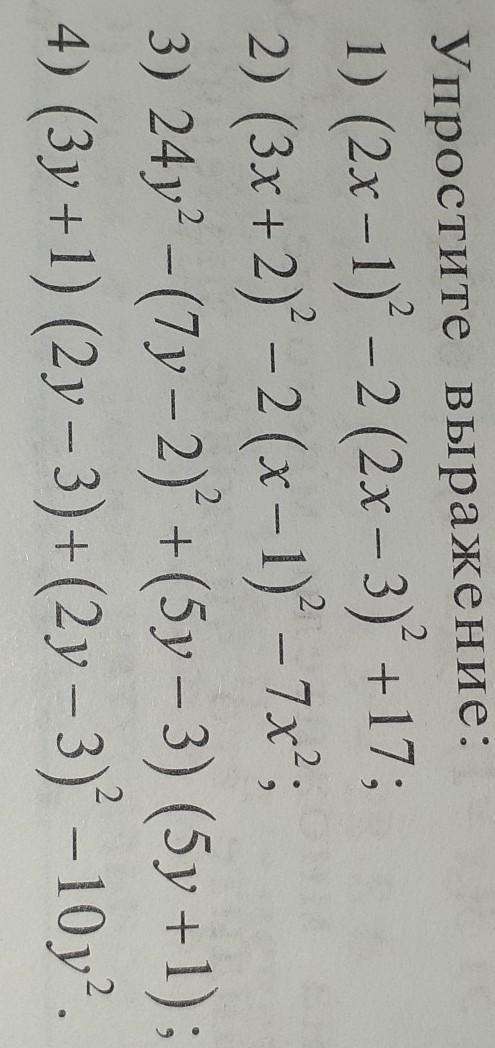 Упростите выражение:
1) (2x – 1)² – 2 (2x – 3)² + 17;
2) (3x + 2)² – 2 (x – 1)² – 7x²;
3) 24y² – (7y – 2)² + (5y – 3) (5y + 1);
4) (3y + 1) (2y – 3) + (2y – 3)² – 10y².